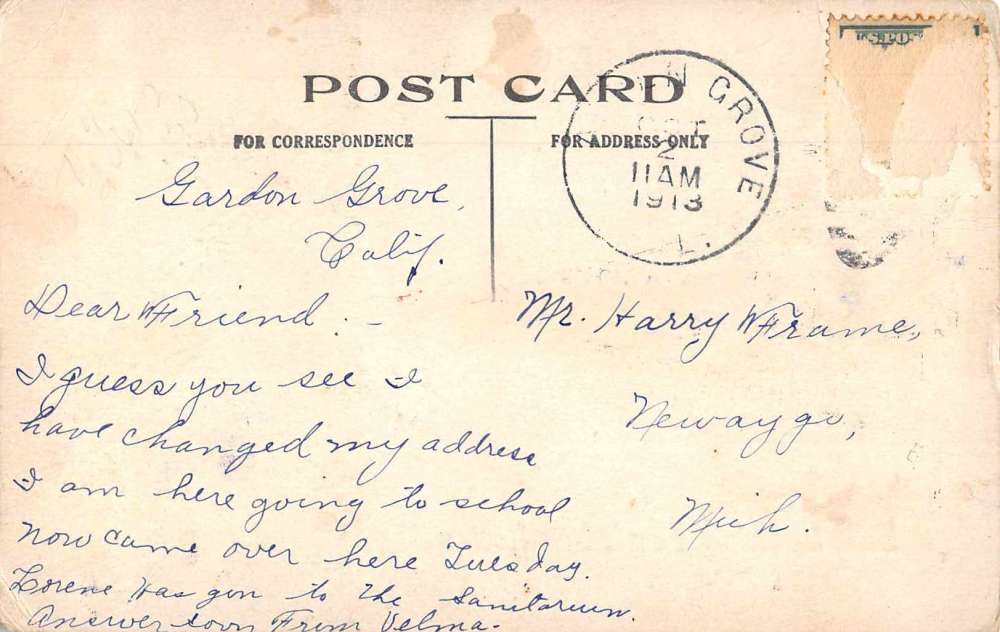 POST CARD
FOR CORRESPONDENCE
FOR ADDRESS ONLY
U.S.POS
1
EN GROVE
OCT
2
11 AM
1913
L.
Gardon Grove,
Calif.
Dear Friend. -
I guess you see I
have changed my address
I am here going to school
now came over here Tuesday.
Lorene has gon to the Sanitarium.
Answer soon From Velma.
Mr. Harry Frame,
Newaygo,
Mich.